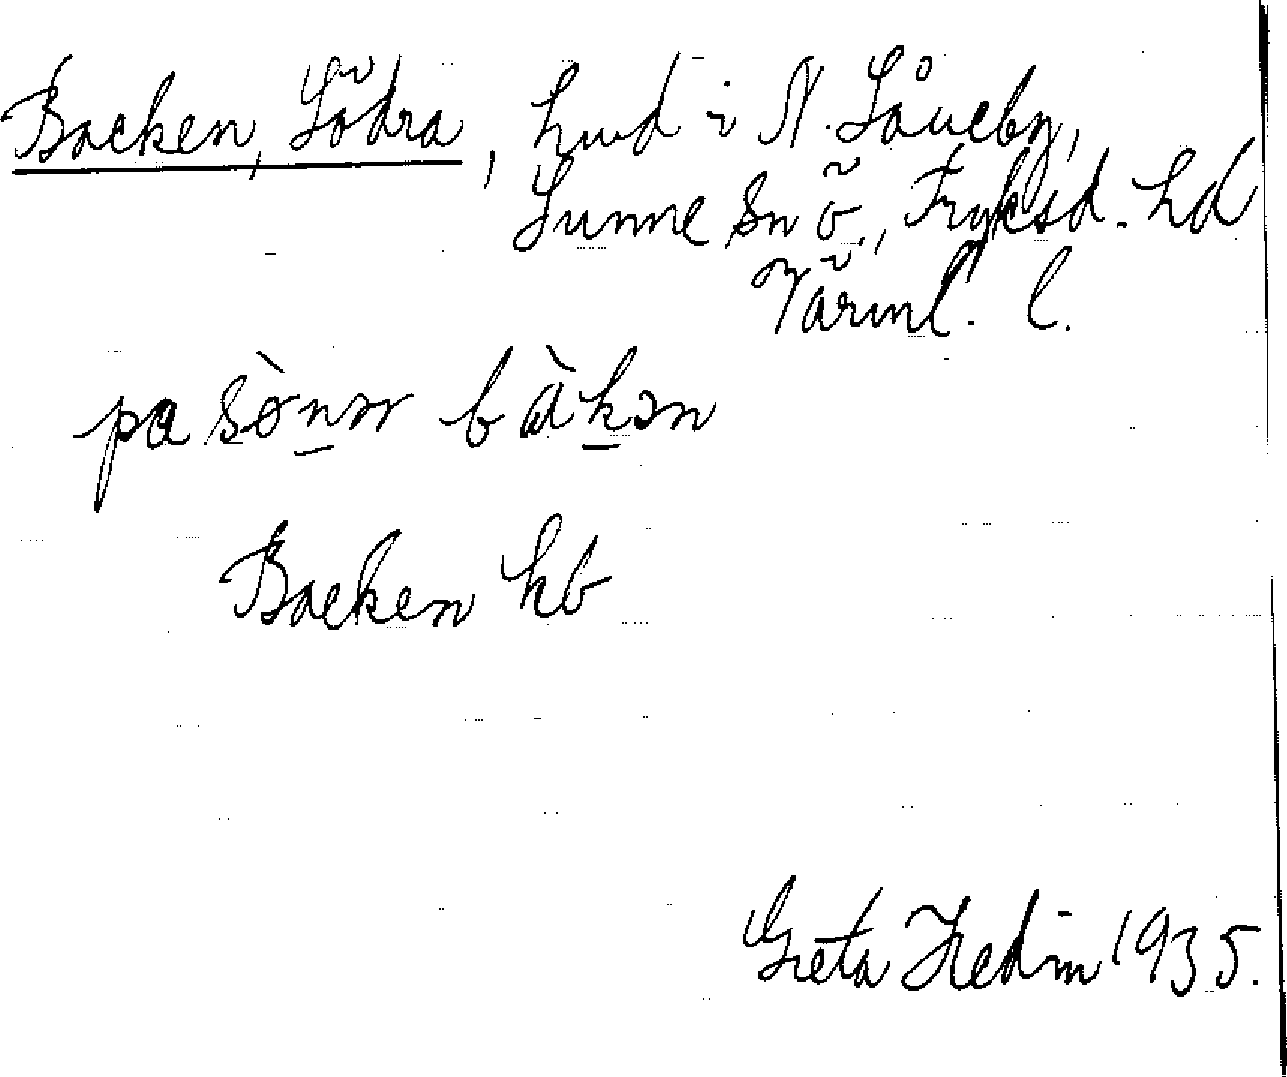 Backen, Södra, hmd i N. Såneby,
Sunne sn ö., Fryksd. hd
Värml. l.
pa sònər bàkən
Backen kb
Greta Hedin 1935.